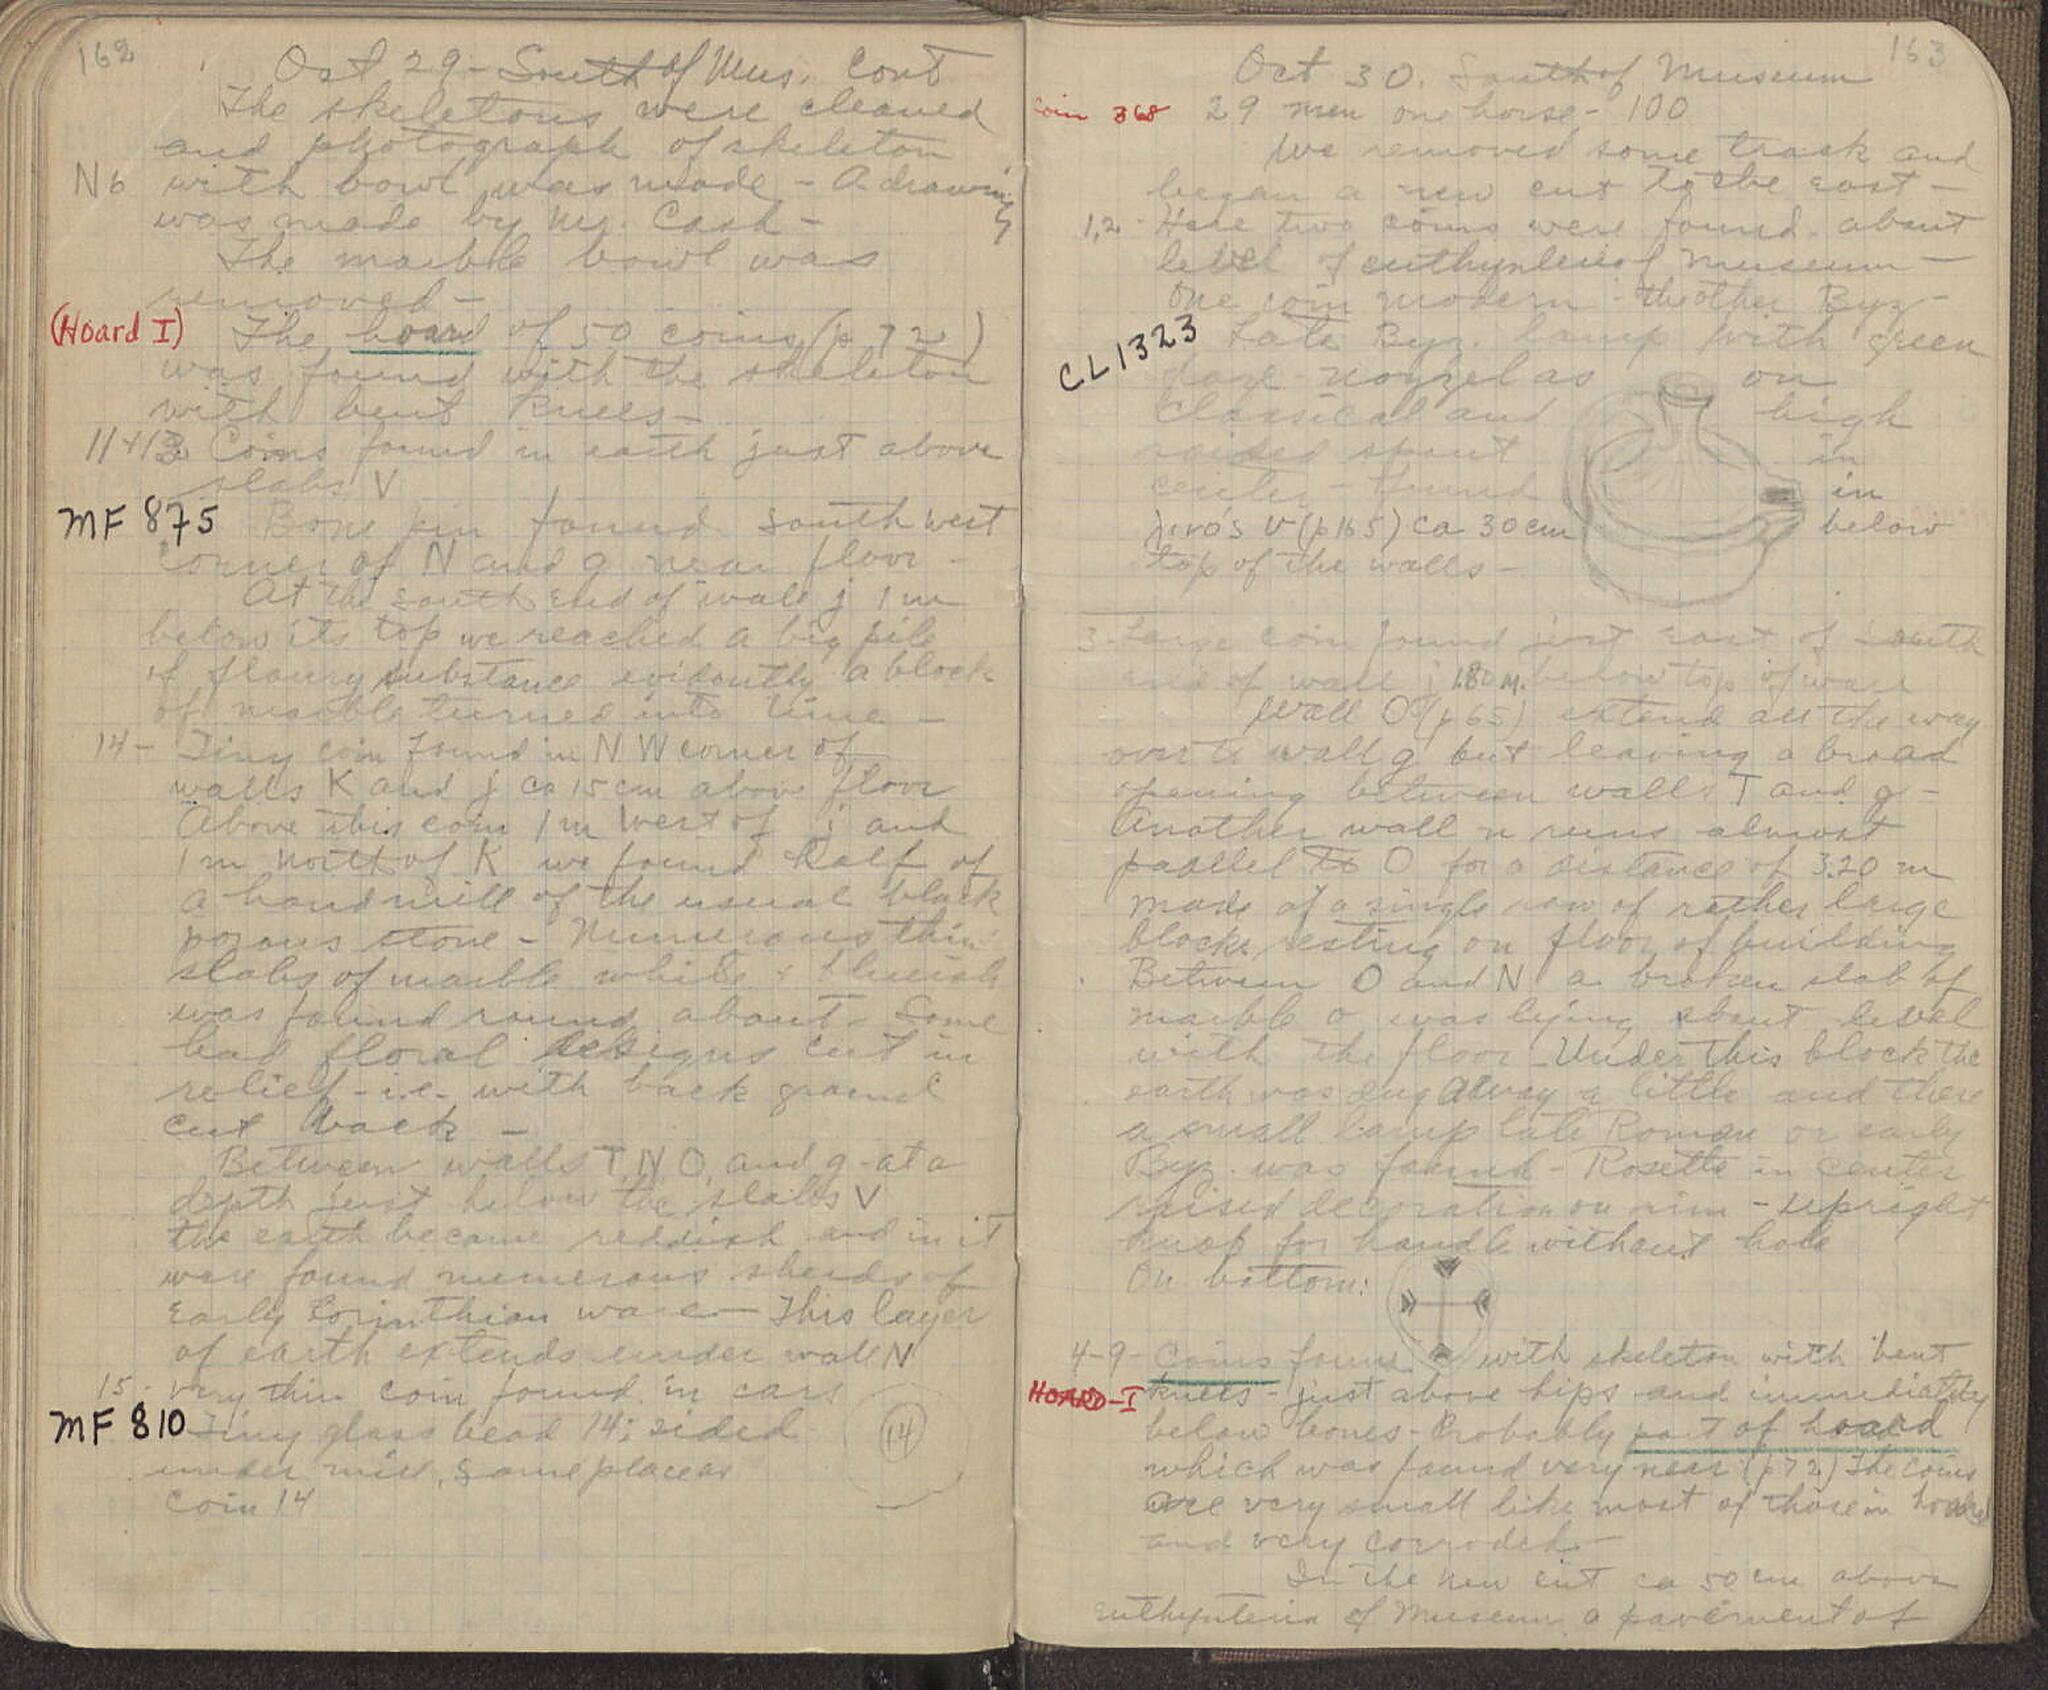 162
Oct 29 - South of Mus. Cont
The skeletons were cleaned
and photograph of skeleton
N6 with bowl was made - A drawing
was made by Mr. Cash -
The marble bowl was
removed -
(Hoard I) The hoard of 50 coins (p 72)
was found with the skeleton
with bent knees -
11+13 Coins found in earth just above
slabs V
MF 875 Bone pin found south west
corner of N and g near floor -
At the south end of wall j 1 m
below its top we reached a big pile
of floury substance evidently a block
of marble turned into lime -
14 - Tiny coin found in N W corner of
walls K and j ca 15 cm above floor
Above this coin 1 m West of j and
1 m north of K we found half of
a hand mill of the usual black
porous stone - Numerous thin
slabs of marble white + blueish
was found round about - Some
had floral designs cut in
relief - i.e. with back ground
cut back -
Between walls T, N O, and g - at a
depth just below the slabs V
the earth became reddish and in it
were found numerous sherds of
Early Corinthian ware - This layer
of earth extends under wall N
15 - Very thin coin found in cars
MF 810 Tiny glass bead 14; sided
under mill, same place as
coin 14
14
163
Oct 30. South of Museum
Coin 368 29 men one horse - 100
We removed some track and
began a new cut to the east -
1,2 - Here two coins were found about
level of euthynteria of Museum -
One coin modern - the other Byz -
CL1323 Late Byz. lamp with green
glaze - nozzel as on
Classical and high
raised spout in
center - Found in
U (p 165) ca 30 cm below
top of the walls -
3 - Large coin found just east of South
end of wall j 1.80 M. below top of wall
Wall O (p 65) extend all the way
over to wall g but leaving a broad
opening between walls T and g -
Another wall n runs almost
paallel to O for a distance of 3.20 m
made of a single row of rather large
blocks, resting on floor of building
Between O and N a broken slab of
marble o was lying about level
with the floor - Under this block the
earth was dug away a little and there
a small lamp late Roman or early
Byz. was found - Rosette in center
raised decoration on rim - upright
knob for handle without hole
On bottom:
4-9 - Coins found with skeleton with bent
HOARD-I knees - just above hips and immediately
below bones - Probably part of hoard
which was found very near (p 72) The coins
are very small like most of those in hoard
and very corroded -
In the new cut ca 50 cm above
Euthynteria of Museum a pavement of